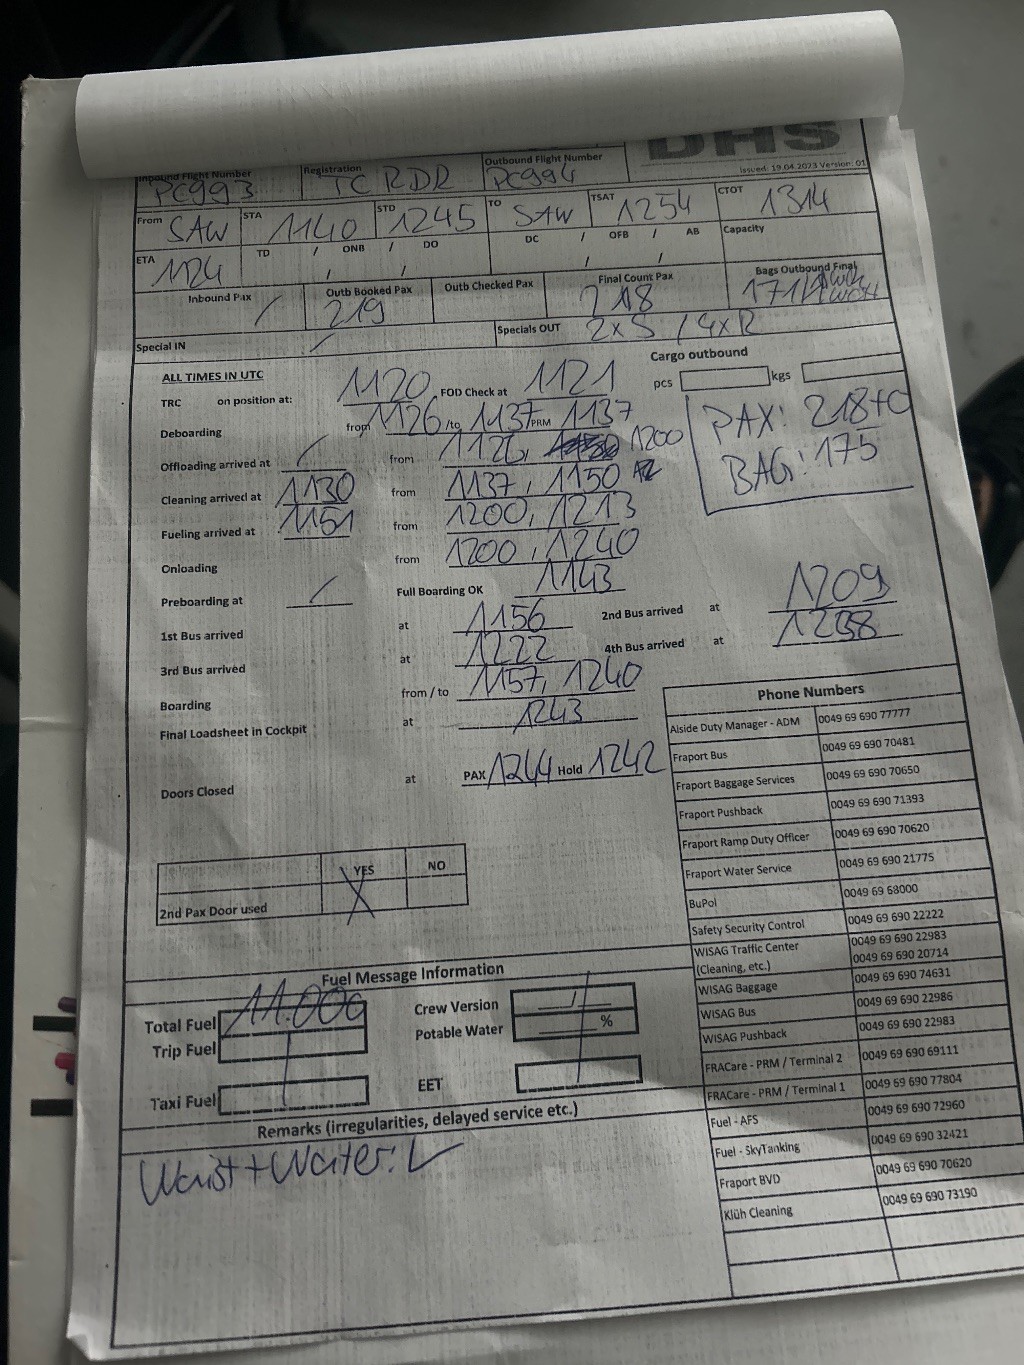 DHS
Issued: 19.04.2023 Version: 01
Inbound Flight Number PC993 Registration TC RDR Outbound Flight Number PC994
From SAW STA 1140 STD 1245 TO SAW TSAT 1254 CTOT 1314
ETA 1124 TD / ONB / DO DC / OFB / AB Capacity
/ / / /
Inbound Pax / Outb Booked Pax 219 Outb Checked Pax Final Count Pax 218 Bags Outbound Final 171/
Special IN / Specials OUT 2xS / 4xR
ALL TIMES IN UTC Cargo outbound
TRC on position at: 1120 FOD Check at 1121 pcs kgs
Deboarding from 1126 /to 1137 PRM 1137
PAX: 218+0
BAG: 175
Offloading arrived at / from 1126, 1200
Cleaning arrived at 1130 from 1137, 1150
Fueling arrived at 1151 from 1200, 1213
Onloading from 1200, 1240
Preboarding at / Full Boarding OK 1143
1st Bus arrived at 1156 2nd Bus arrived at 1209
3rd Bus arrived at 1222 4th Bus arrived at 1238
Boarding from / to 1157, 1240
Final Loadsheet in Cockpit at 1243
Doors Closed at PAX 1244 Hold 1242
YES NO
2nd Pax Door used X
Phone Numbers
Airside Duty Manager - ADM 0049 69 690 77777
Fraport Bus 0049 69 690 70481
Fraport Baggage Services 0049 69 690 70650
Fraport Pushback 0049 69 690 71393
Fraport Ramp Duty Officer 0049 69 690 70620
Fraport Water Service 0049 69 690 21775
BuPol 0049 69 68000
Safety Security Control 0049 69 690 22222
WISAG Traffic Center 0049 69 690 22983
(Cleaning, etc.) 0049 69 690 20714
WISAG Baggage 0049 69 690 74631
WISAG Bus 0049 69 690 22986
WISAG Pushback 0049 69 690 22983
FRACare - PRM / Terminal 2 0049 69 690 69111
FRACare - PRM / Terminal 1 0049 69 690 77804
Fuel - AFS 0049 69 690 72960
Fuel - SkyTanking 0049 69 690 32421
Fraport BVD 0049 69 690 70620
Klüh Cleaning 0049 69 690 73190
Fuel Message Information
Total Fuel 11.000 Crew Version /
Trip Fuel Potable Water %
Taxi Fuel EET
Remarks (irregularities, delayed service etc.)
Waist + Water: ✓